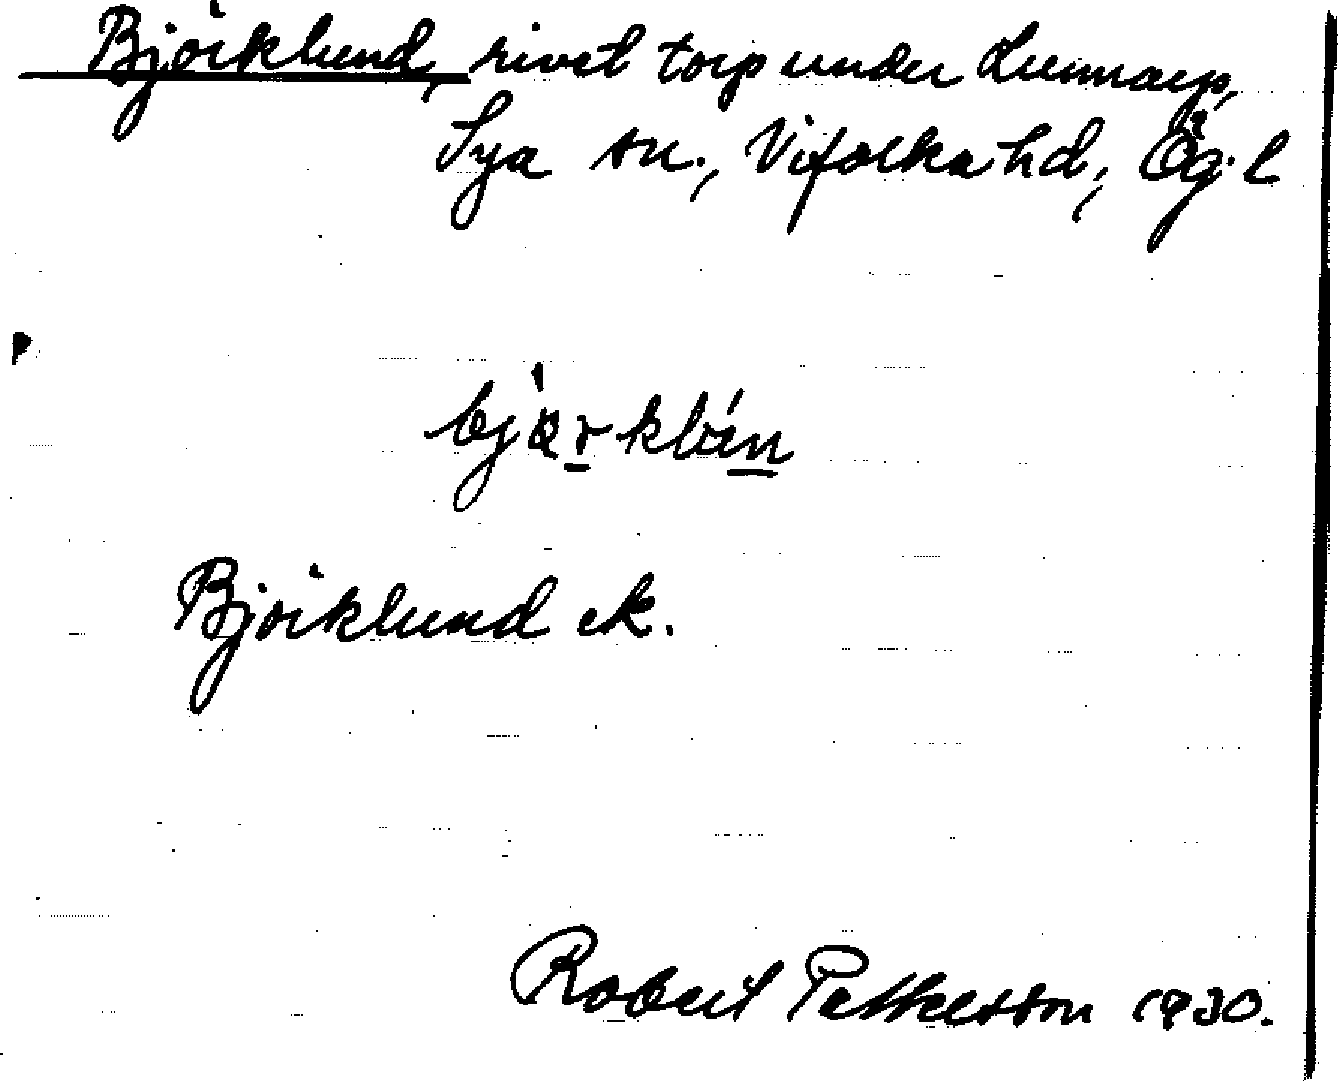 Björklund, rivet torp under Lunnarp,
Sya sn., Vifolka hd, Ög. l
Björklund ek.
Robert Pettersson 1930.